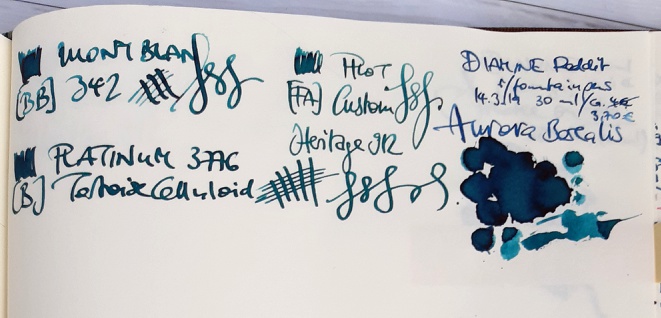 MONTBLAN
[BB] 342
PLATINUM 3776
[B] Tortoise Celluloid
PILOT
[FA] Custom
Heritage 912
DIAMINE Reddit
r/fountainpens
14.3.19 30 ml/ca.
3,70€
Aurora Borealis